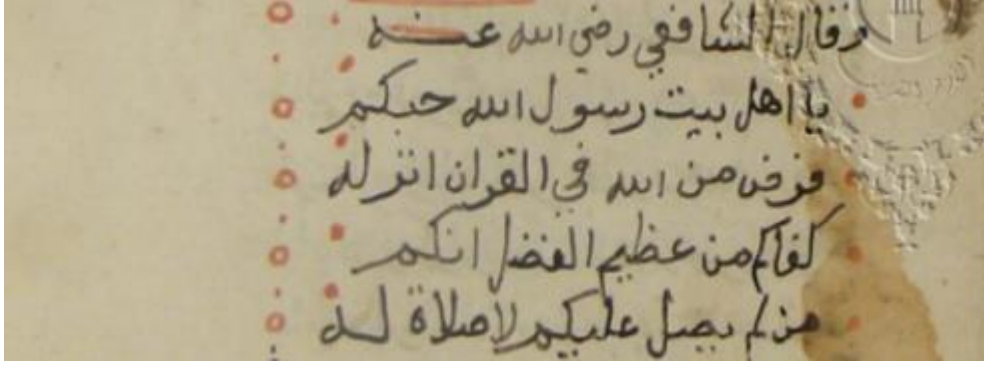 وقال الشافعي رضي الله عنه
يا اهل بيت رسول الله حبكم
فرض من الله في القران انزله
كفاكم من عظيم الفضل انكم
من لم يصل عليكم لا صلاة له